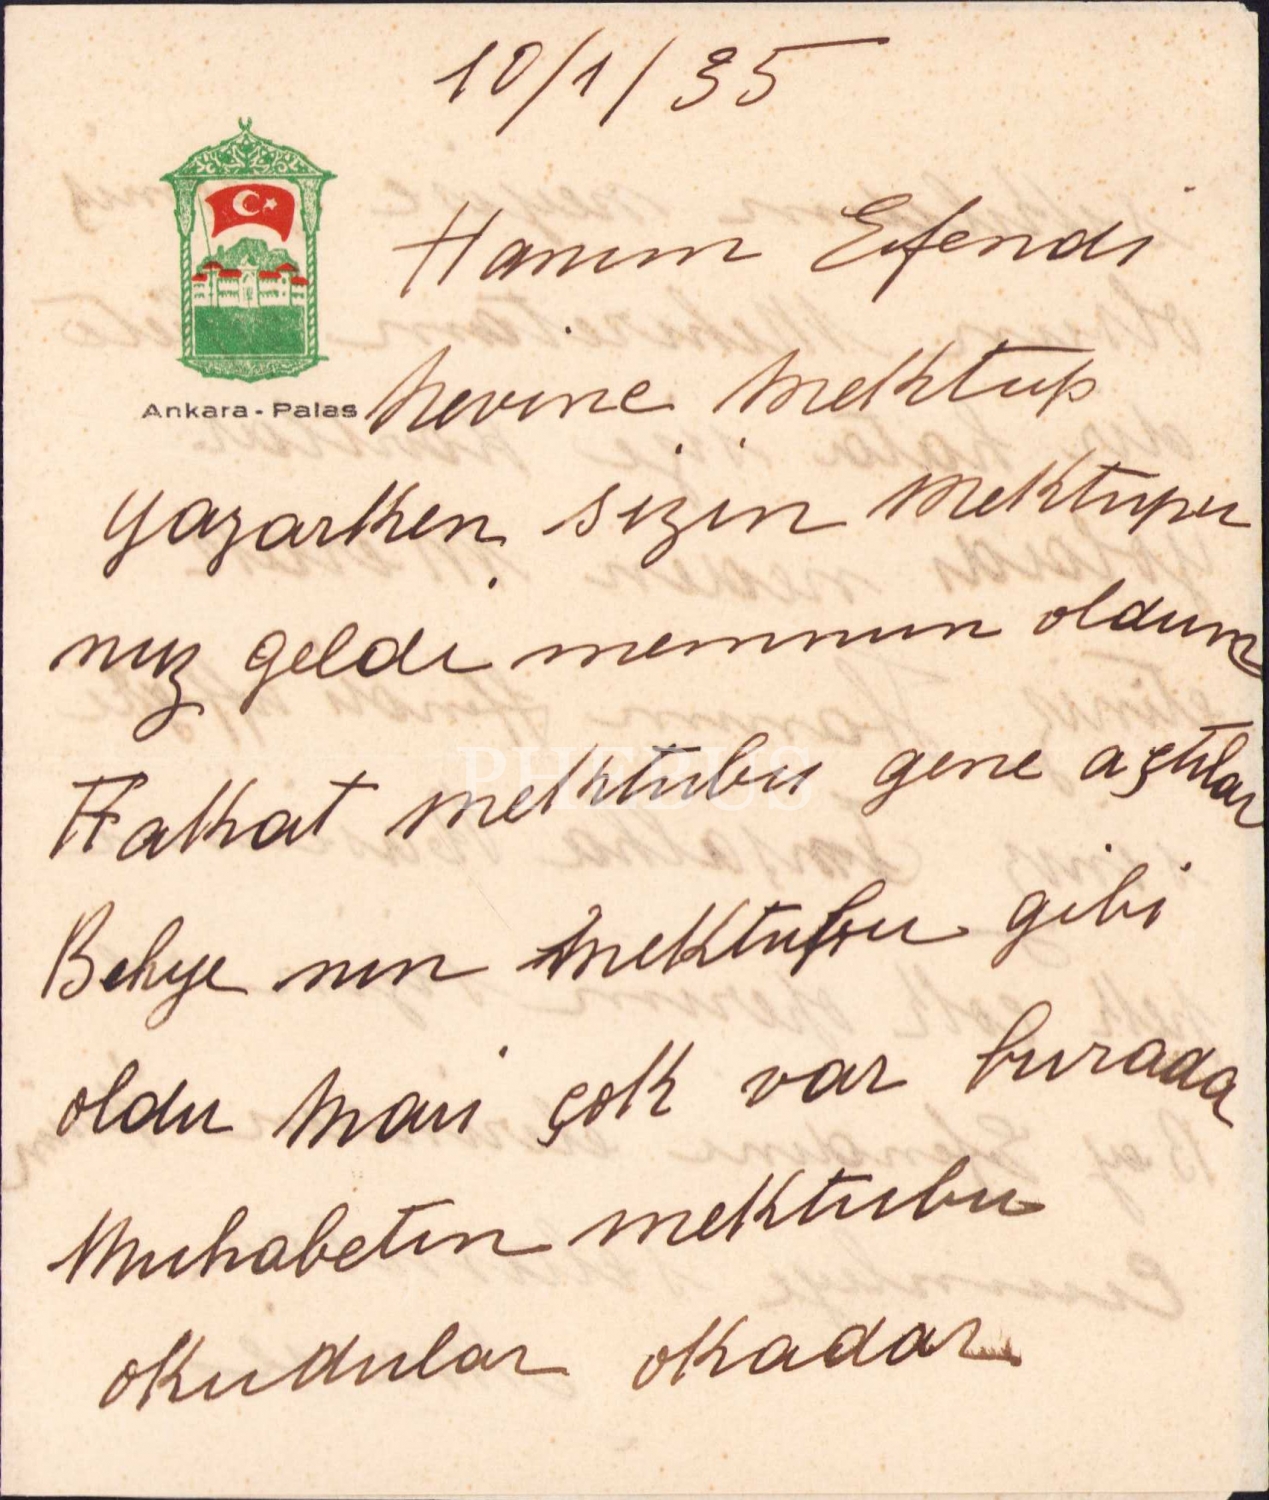 10/1/35
Hanım Efendi
Ankara-Palas
Nevine mektup
yazarken sizin mektupu
nuz geldi memnun oldum
Fakat mektubu gene açtılar
Behye nin mektubu gibi
oldu Mani çok var burada
Muhabetin mektubu
okudular okadar
PHEBUS